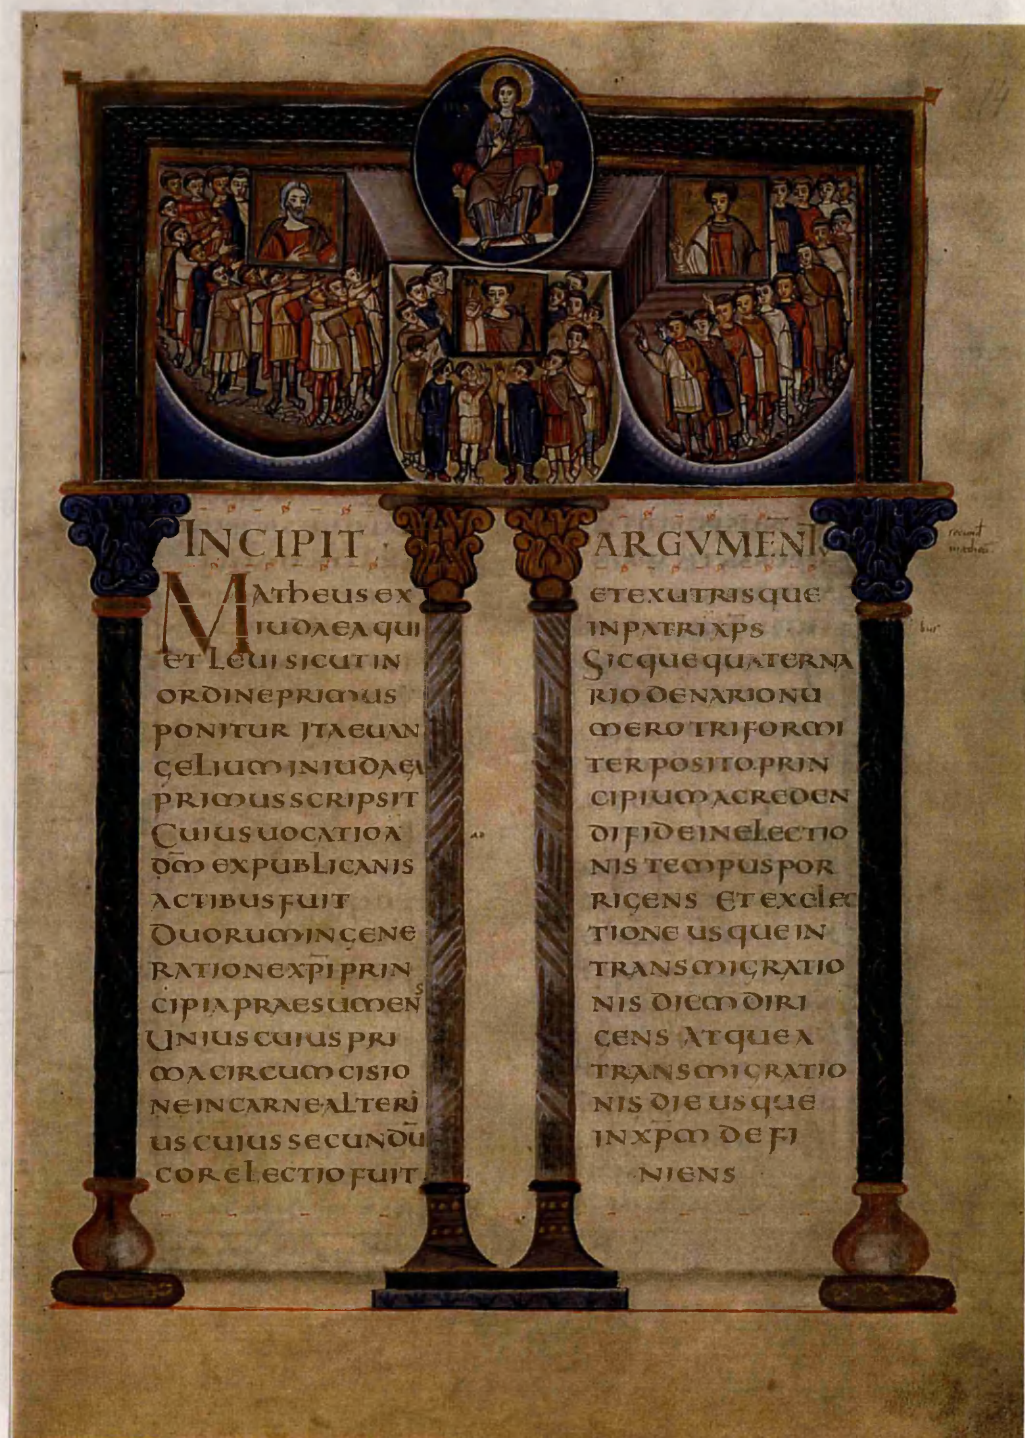 INCIPIT
MATHEUS EX
IUDAEA QUI
ET LEUI SICUT IN
ORDINE PRIMUS
PONITUR ITA EUAN
GELIUM IN IUDAEA
PRIMUS SCRIPSIT
CUIUS UOCATIO A
DM̅ EX PUBLICANIS
ACTIBUS FUIT
DUORUM IN GENE
RATIONE XP̅I PRIN
CIPIA PRAESUMENS
UNIUS CUIUS PRI
MA CIRCUMCISIO
NE IN CARNE ALTERI
US CUIUS SECUNDŪ
COR ELECTIO FUIT
ARGVMENT̅
ET EX UTRISQUE
IN PATRI XP̅S
SICQUE QUATERNA
RIO DENARIO NU
MERO TRIFORMI
TER POSITO.PRIN
CIPIUM A CREDEN
DI FIDE IN ELECTIO
NIS TEMPUS POR
RIGENS ET EX ELEC
TIONE USQUE IN
TRANSMIGRATIO
NIS DIEM DIRI
GENS ATQUE A
TRANSMIGRATIO
NIS DIE USQUE
IN XP̅M DEFI
NIENS